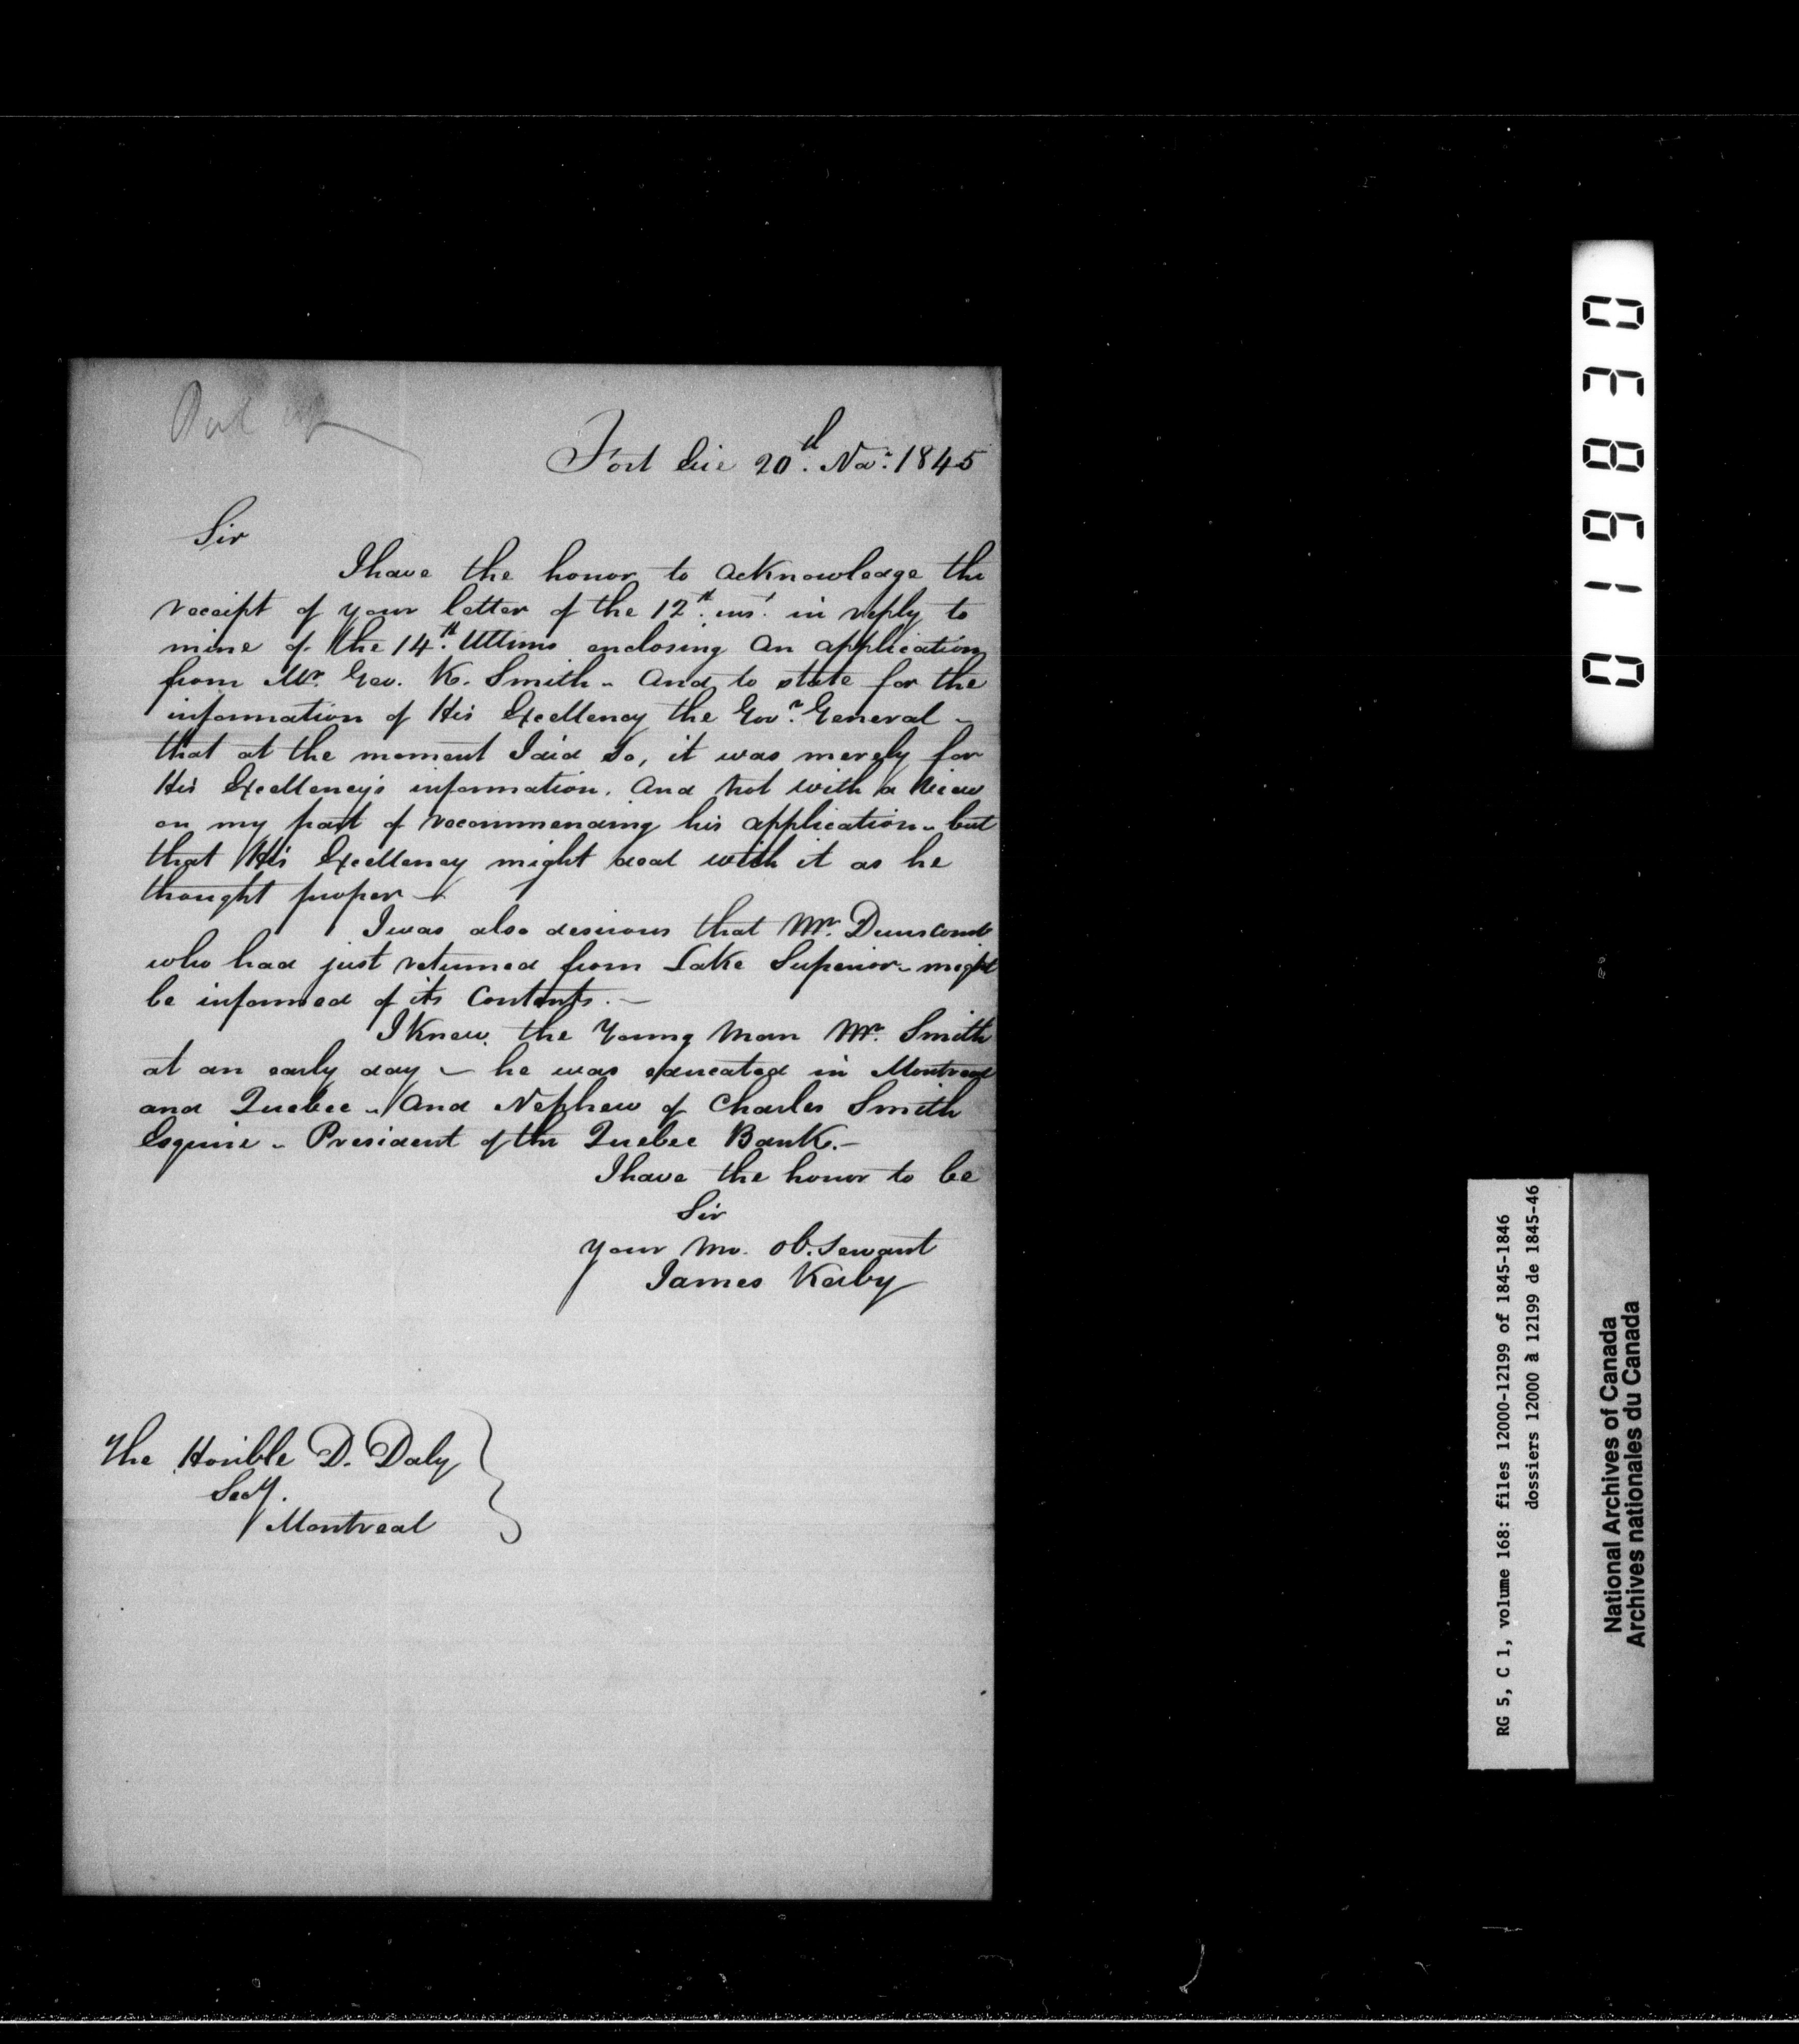 Put up
Fort Erie 20.d Nov.r 1845
Sir
I have the honor to acknowledge the
receipt of your letter of the 12.th ins.t in reply to
mine of the 14.th Ultimo enclosing an application
from Mr. Geo. K. Smith - and to state for the
information of His Excellency the Gov.r General -
that at the moment I did so, it was merely for
His Excellency's information. and not with a view
on my part of recommending his application - but
that His Excellency might deal with it as he
thought proper -
I was also desirous that Mr. Dunscomb
who had just returned from Lake Superior - might
be informed of its Contents. -
I knew the Young Man Mr. Smith
at an early day - he was educated in Montreal
and Quebec - and Nephew of Charles Smith
Esquire - President of the Quebec Bank. -
I have the honor to be
Sir
Your Mo. Ob. Servant
James Kerby
The Honble D. Daly
Secy.
Montreal
019830
RG 5, C 1, volume 168: files 12000-12199 of 1845-1846
dossiers 12000 à 12199 de 1845-46
National Archives of Canada
Archives nationales du Canada